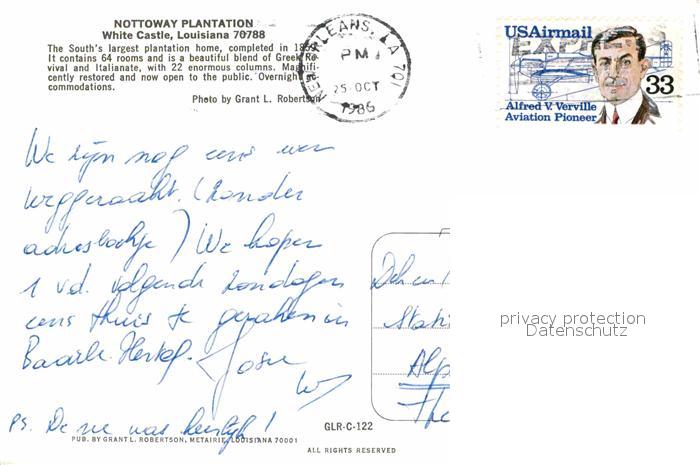 NOTTOWAY PLANTATION
White Castle, Louisiana 70788
The South's largest plantation home, completed in 1859.
It contains 64 rooms and is a beautiful blend of Greek Re-
vival and Italianate, with 22 enormous columns. Magnifi-
cently restored and now open to the public. Overnight ac-
commodations.
Photo by Grant L. Robertson
NEW ORLEANS, LA 701
PM
25 OCT
1986
USAirmail
33
Alfred V. Verville
Aviation Pioneer
We zijn nog eens weer
weggeraakt. (zonder
adresboekje) We hopen
1 v.d. volgende zondagen
eens thuis te geraken in
Baarle-Hertog.
PS. De zee was heerlijk!
privacy protection
Datenschutz
GLR-C-122
PUB. BY GRANT L. ROBERTSON, METAIRIE, LOUISIANA 70001
ALL RIGHTS RESERVED